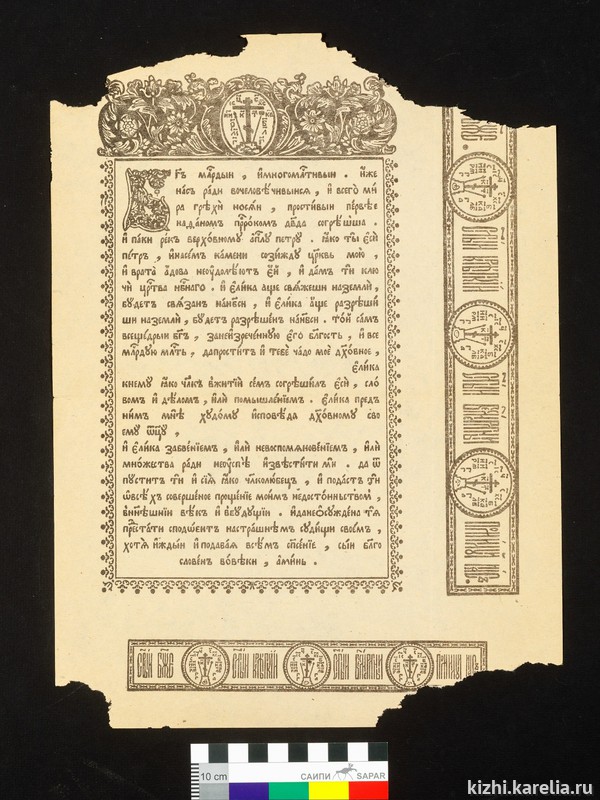 Бг҃ъ мл҃рдыи , и҆многомл҃тивыи . и҆же
на́съ ра́ди вочеловѣ́чивыисѧ , и҆ всего̀ ми́
ра грѣхѝ носѧ́й , прости́выи пе́рвѣе
наѳа́номъ прⷪ҇ро́комъ дв҃да согрѣ́шша .
и҆ па́ки ре́къ верхо́вному а҆пⷭ҇лꙋ петрꙋ̀ . ꙗ҆́ко ты̀ є҆сѝ
пе́тръ , и҆насе́мъ ка́мени сози́ждꙋ цр҃ковь мою̀ ,
и҆ врата̀ а҆́дова неѡдолѣ́ютъ є҆́й , и҆ да́мъ тѝ клю
чи̂ црⷭ҇тва нбⷭ҇наго . и҆ є҆ли́ка а҆́ще свѧ́жеши наземлѝ ,
бꙋ́детъ свѧ́занъ нанб҃сѝ , и҆ є҆ли́ка а҆́ще разрѣши́
ши наземлѝ , бꙋ́детъ разрѣше́нъ нанб҃сѝ . то́й са́мъ
всеще́дрыи бг҃ъ , занеизрече́ннꙋю є҆го̀ бл҃гость , и҆ все
мл҃рдꙋю мл҃ть , дапрости́тъ и҆ тебѐ ча́до моѐ дх҃о́вное ,
є҆ли́ка
кнемꙋ̀ ꙗ҆́ко чл҃къ вжитіѝ се́мъ согрѣши́лъ є҆сѝ , сло́
вомъ и҆ дѣ́ломъ , и҆лѝ помышле́нїемъ . є҆ли́ка пред̾
ни́мъ мнѣ̀ хꙋдо́мꙋ и҆сповѣ́да дх҃о́вномꙋ сво
емꙋ̀ ѻ҆ц҃ꙋ̀ ,
и҆ є҆ли́ка забве́нїемъ , и҆лѝ невоспомѧнове́нїемъ , и҆лѝ
мно́жества ра́ди неѹ҆спѣ̀ и҆звѣсти́ти мѝ . да ѿ
пꙋ́ститъ тѝ и҆ сїѧ̀ ꙗ҆́ко чл҃колю́бецъ , и҆ пода́стъ тѝ
ѿвсѣ́хъ соверше́ное проще́нїе мои́мъ недосто́иньствомъ ,
внн҃ѣшнїи вѣ́къ и҆ вбꙋ́дꙋщїи . и҆данеѡ҆сꙋжде́на тѧ̀
предста́ти сподо́битъ настра́шнѣмъ сꙋди́щи свое́мъ ,
хотѧ́й и҆жды́й и҆ подава́ѧ всѣ́мъ сп҃се́нїе , сы́и благо
слове́нъ во́вѣки , а҆ми́нь .
ст҃ы́й бж҃е
ст҃ы́й крѣ́пкїй
ст҃ы́й
10 cm
САИПИ SAPAR
kizhi.karelia.ru